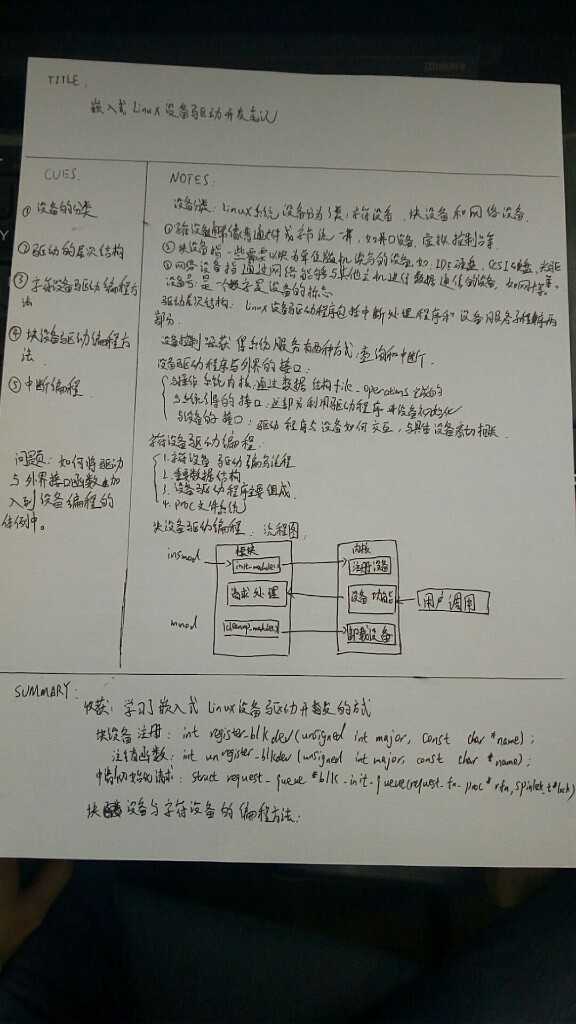 TITLE.
嵌入式 Linux 设备驱动开发笔记
CUES.
① 设备的分类
② 驱动的层次结构
③ 字符设备驱动编程方
法
④ 块设备驱动编程方
法.
⑤ 中断编程.
问题: 如何将驱动
与外界接口函数加
入到设备编程的
任例中。
NOTES:
设备分类: Linux系统设备分为3类: 字符设备、块设备和网络设备.
① 字符设备 像普通文件或字节流一样, 如串口设备、虚拟控制台等.
② 块设备指一些需要以块为单位随机读写的设备, 如 IDE硬盘、SCSI硬盘、光驱
③ 网络设备指通过网络能够与其他主机进行数据通信的设备, 如网卡等.
设备号: 是一个数字是设备的标志
驱动层次结构: Linux设备驱动程序包括中断处理程序和设备服务子程序两
部分.
设备控制 获得系统服务有两种方式: 查询和中断.
设备驱动程序与外界的接口:
与操作系统内核: 通过数据结构 file_operations 完成的
与系统引导的接口: 这部分利用驱动程序 设备初始化
与设备的接口: 驱动程序与设备如何交互, 与具体设备密切相关.
字符设备驱动编程:
1. 字符设备驱动编写流程
2. 重要数据结构
3. 设备驱动程序主要组成
4. proc 文件系统
块设备驱动编程: 流程图.
模块
内核
insmod
init_module()
注册设备
请求处理
设备功能
用户调用
rmmod
cleanup_module()
卸载设备
SUMMARY:
收获: 学习了嵌入式 Linux设备驱动开发的方式
块设备注册: int register_blkdev (unsigned int major, const char *name);
注销函数: int unregister_blkdev (unsigned int major, const char *name);
初始请求: struct request_queue *blk_init_queue(request_fn_proc *rfn, spinlock_t *lock)
块设备与字符设备的编程方法: